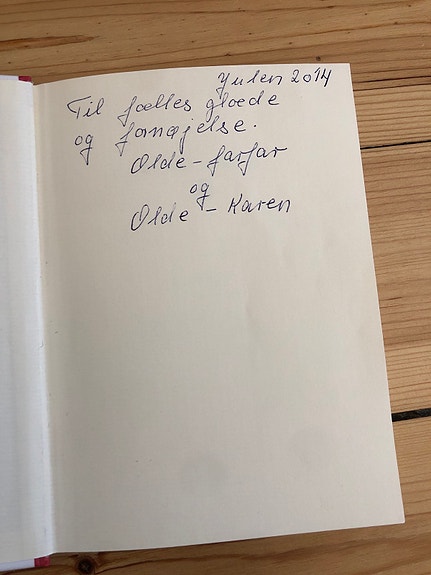 Julen 2014
Til fælles glæde
og fornøjelse.
Olde-farfar
og
Olde-Karen